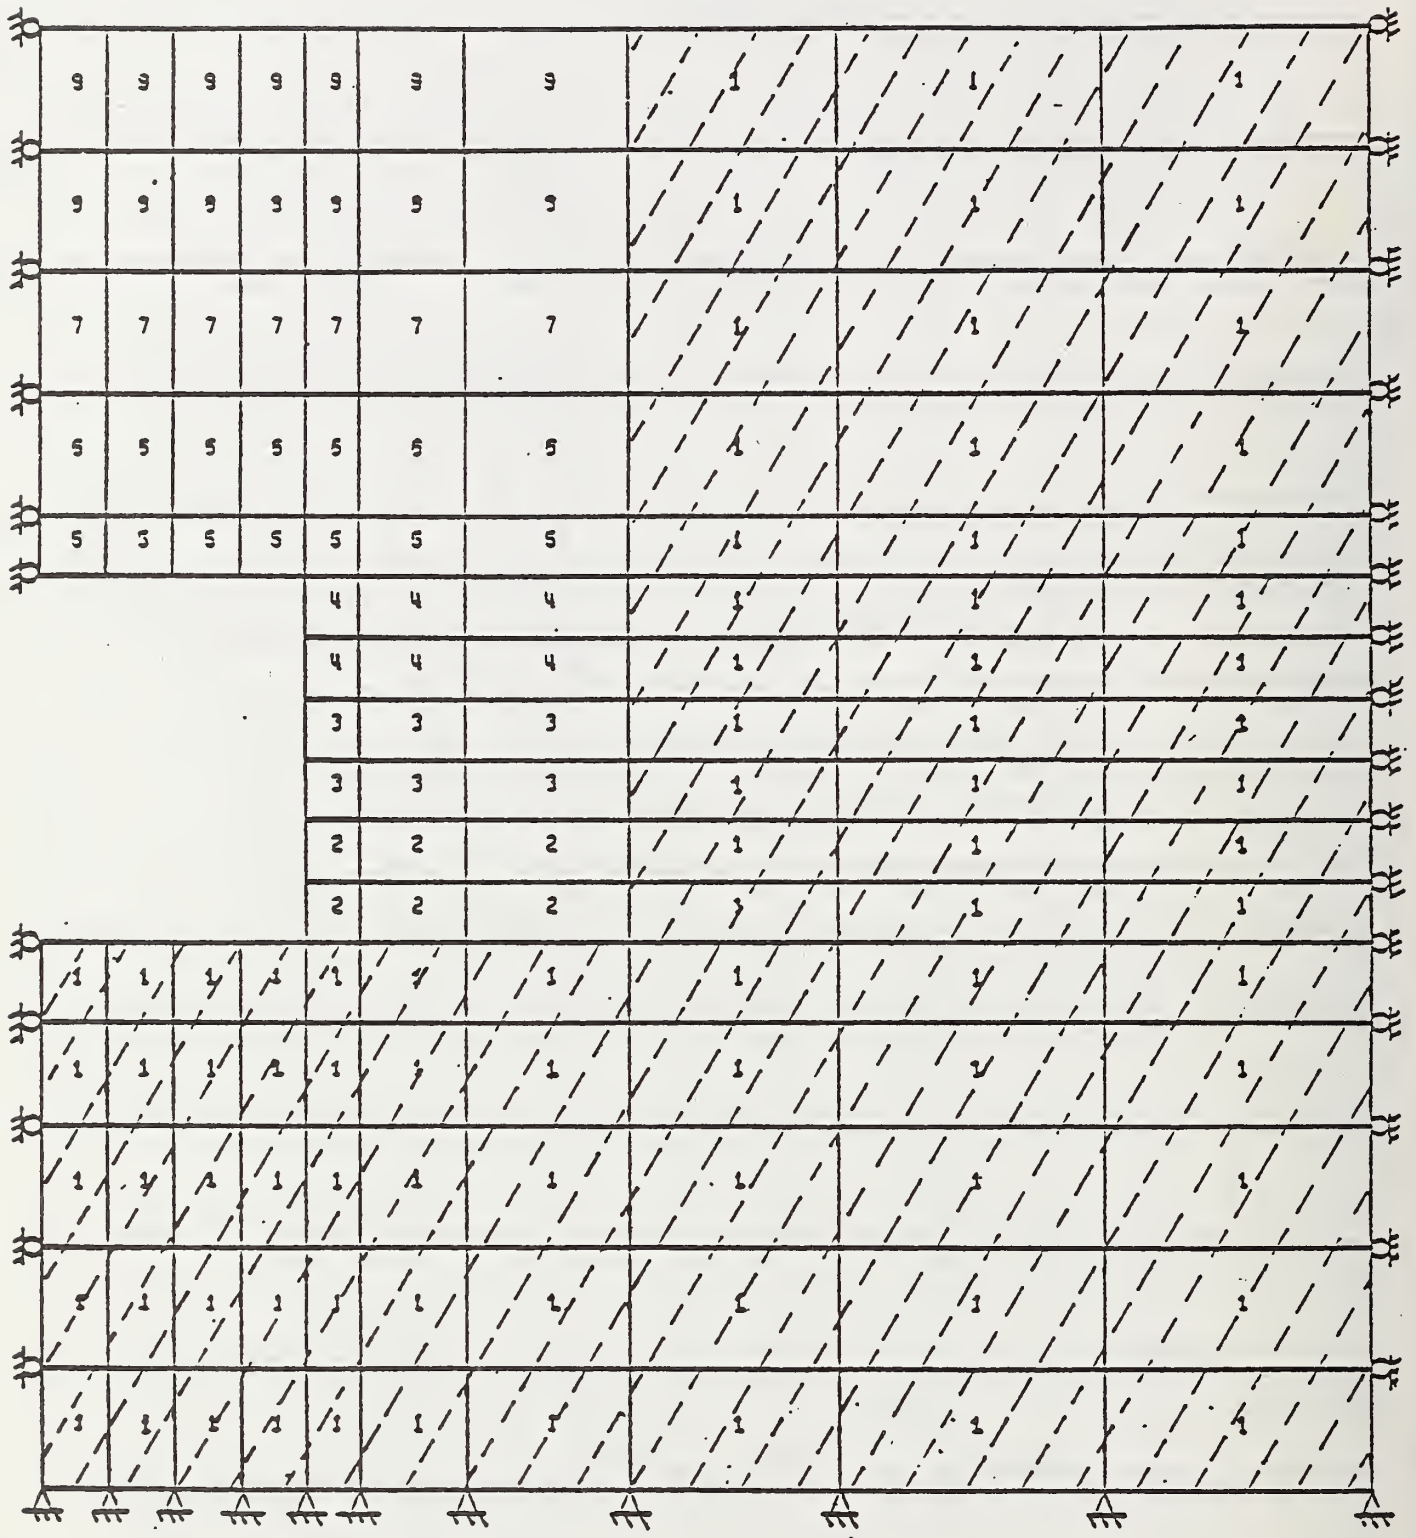 9 9 9 9 9 9 9 1 1 1
9 9 9 9 9 9 9 1 1 1
7 7 7 7 7 7 7 1 1 1
6 6 6 6 6 6 6 1 1 1
5 5 5 5 5 5 5 1 1 1
4 4 4 1 1 1
4 4 4 1 1 1
3 3 3 1 1 1
3 3 3 1 1 1
2 2 2 1 1 1
2 2 2 1 1 1
1 1 1 1 1 1 1 1 1 1
1 1 1 1 1 1 1 1 1 1
1 1 1 1 1 1 1 1 1 1
1 1 1 1 1 1 1 1 1 1
1 1 1 1 1 1 1 1 1 1